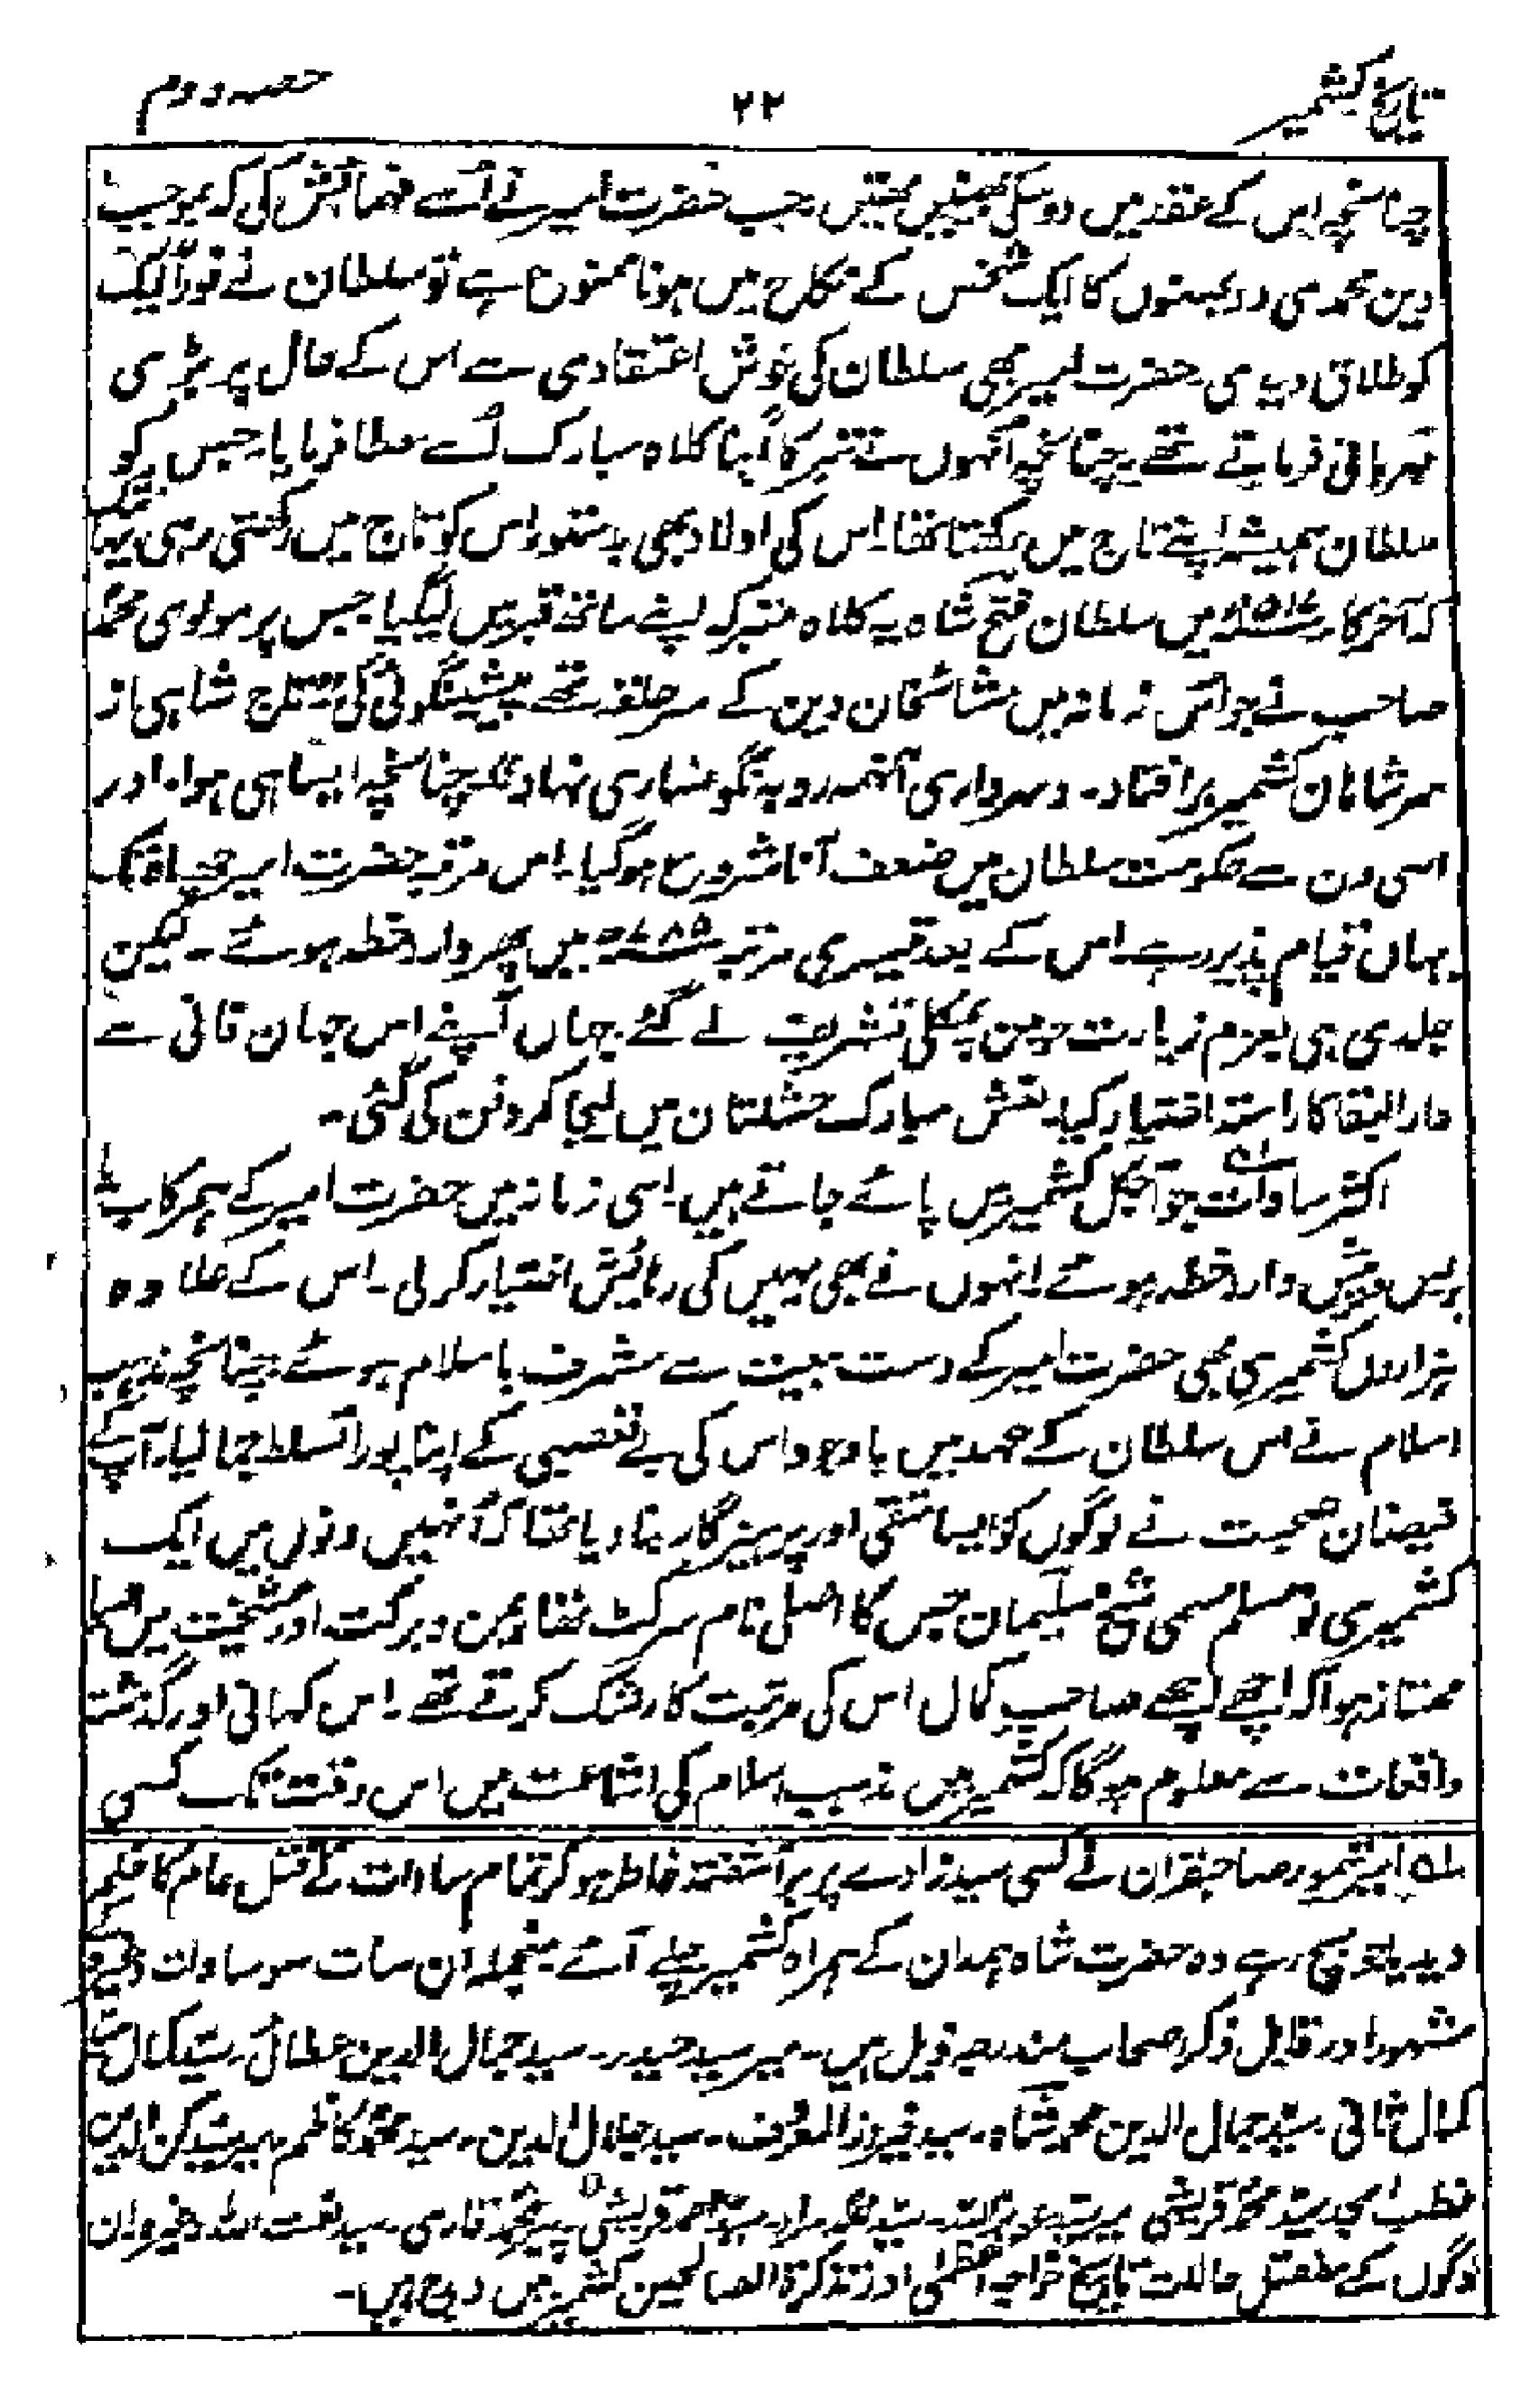 تاریخ کشمیر
۲۲
حصہ دوم
چنانچہ اس کے عقد میں دو سگی بہنیں تھیں۔ جب حضرت امیر نے اُسے فہمائش کی کہ بموجب
دین محمدی دو بہنوں کا ایک شخص کے نکاح میں ہونا ممنوع ہے تو سلطان نے فوراً ایک
کو طلاق دیدی۔ حضرت امیر بھی سلطان کی خوش اعتقادی سے اس کے حال پر بڑی
مہربانی فرماتے تھے۔ چنانچہ اُنہوں نے تبرکاً اپنا کلاہ مبارک اُسے عطا فرمایا۔ جس کو
سلطان ہمیشہ اپنے تاج میں رکھتا تھا۔ اس کی اولاد بھی بدستور اس کو تاج میں رکھتی رہی۔ یہانتک
کہ آخر کار میں سلطان فتح شاہ یہ کلاہ متبرکہ اپنے ساتھ قبر میں لیگیا جس پر مولوی محمد
صاحب نے جو اس زمانہ میں مشائخان دین کے سرحلقہ تھے پیشینگوئی کی تاج شاہی از
سر شاہان کشمیر برافتاد۔ و سرداری آنہمہ رو بہ نگونساری نہاد چنانچہ ایسا ہی ہوا۔ اور
اسی دن سے حکومت سلطان میں ضعف آنا شروع ہو گیا۔ اس مرتبہ حضرت امیر چھ ماہ تک
یہاں قیام پذیر رہے۔ اس کے بعد تیسری مرتبہ ۷۸۵ھ میں پھر وارد خطہ ہوئے۔ لیکن
جلدی ہی بعزم زیارت حرمین پکھلی تشریف لے گئے۔ جہاں آپنے اس جہان فانی سے
دار البقا کا راستہ اختیار کیا۔ نعش مبارک ختلان میں لیجا کر دفن کی گئی۔
اکثر سادات جو آجکل کشمیر میں پائے جاتے ہیں۔ اسی زمانہ میں حضرت امیر کے ہمرکاب
وارد خطہ ہوئے۔ انہوں نے بھی یہیں کی رہائش اختیار کر لی۔ اس کے علاوہ
ہزاروں کشمیری بھی حضرت امیر کے دست بیعت سے مشرف باسلام ہوئے۔ چنانچہ مذہب
اسلام نے اس سلطان کے عہد میں باوجود اس کی بے تعصبی کے اپنا پورا تسلط جما لیا۔ آپ کے
فیضان صحبت نے لوگوں کو ایسا متقی اور پرہیزگار بنا دیا تھا کہ اُنہیں دنوں میں ایک
کشمیری نو مسلم مسمی شیخ سلیمان جس کا اصلی نام سرکٹ تھا۔ یمن و برکت اور مشیخیت میں ایسا
ممتاز ہوا کہ اچھے اچھے صاحب کمال اس کی مرتبت کا رشک کرتے تھے۔ اس کہانی اور گذشتہ
واقعات سے معلوم ہوگا کہ کشمیر میں مذہب اسلام کی اشاعت میں اس وقت تک کسی
۵۱ امیر تیمور صاحبقران نے کسی سید زادے پر برآشفتہ خاطر ہو کر تمام سادات کے قتل عام کا حکم
دیدیا جو بچ رہے وہ حضرت شاہ ہمدان کے ہمراہ کشمیر چلے آئے۔ منجملہ ان سات سو سادات کے
مشہور اور قابل ذکر اصحاب مندرجہ ذیل ہیں۔ میر سید حیدر۔ سید جمال الدین عطائی۔ سید کمال
کمال ثانی۔ سید جمال الدین محمد شاہ۔ سید فیروز المعروف۔ سید جلال الدین۔ سید محمد کاظم۔ میر سید رکن الدین
سید محمد قریشی۔ میر سید عزیز اللہ۔ سید محمد مراد۔ سید احمد قریشی۔ پیر محمد قاری۔ سید نعمت اللہ وغیرہ ان
لوگوں کے مفصل حالات تاریخ خواجہ اعظمی اور تذکرۃ الصالحین کشمیر میں درج ہیں۔